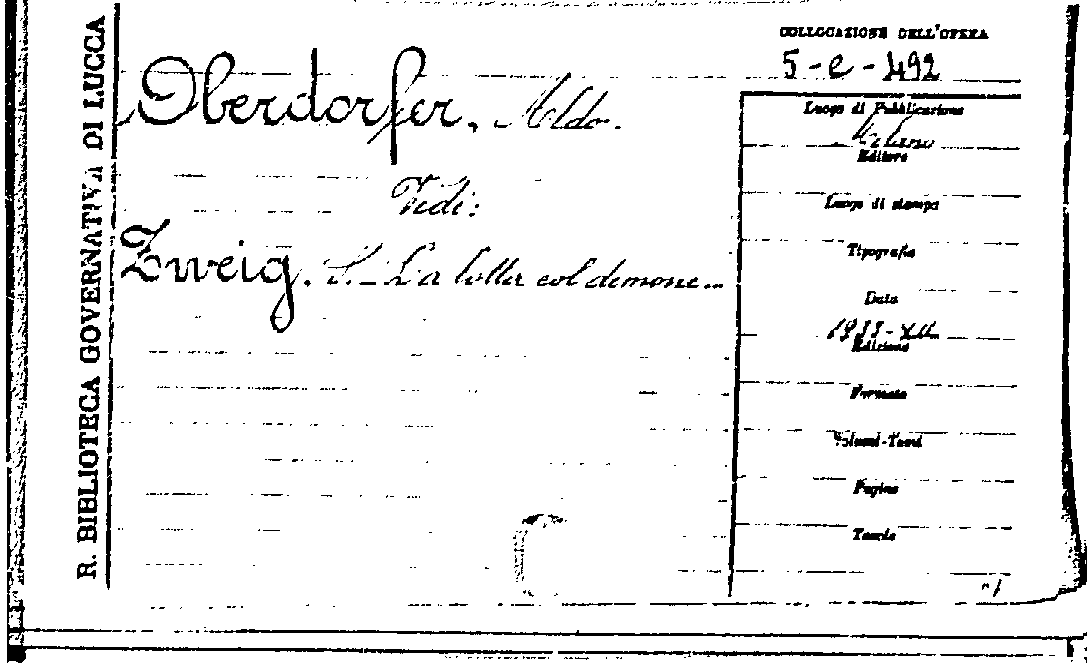 R. BIBLIOTECA GOVERNATIVA DI LUCCA
COLLOCAZIONE DELL'OPERA
5-e-492
Oberdorfer, Aldo.
Vedi:
Zweig. S. - La lotta col demone...
Luogo di Pubblicazione
Milano
Editore
Luogo di stampa
Tipografia
Data
1933-XII
Edizione
Formato
Volumi-Tomi
Pagine
Tavole